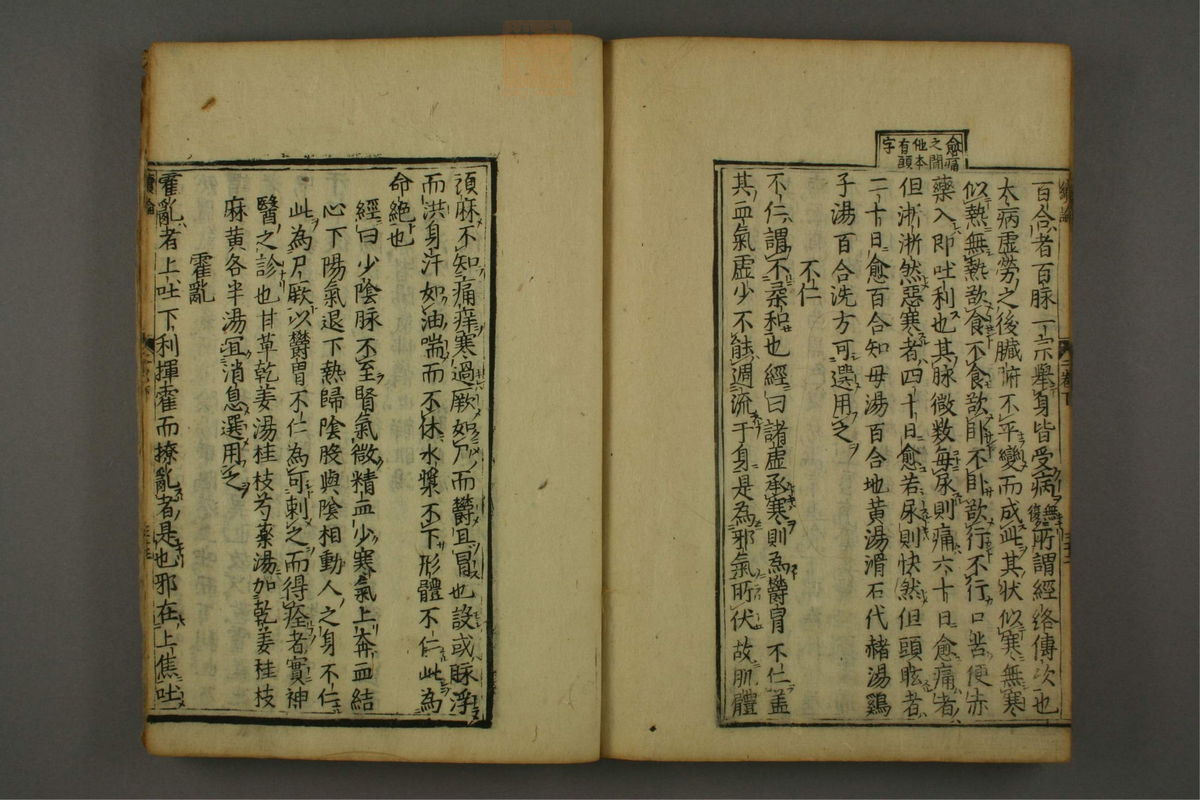 愈痛
之間
他本
有頭
字
百合者百脉一宗舉身皆受病無復所謂經絡傳次也
太病虚勞之後臓腑不平變而成此其狀似寒無寒
似熱無熱欲食不食欲卧不卧欲行不行口苦便赤
藥入即吐利也其脉微数每尿則痛六十日愈痛者
但淅淅然惡寒者四十日愈若尿則快然但頭眩者
二十日愈百合知母湯百合地黄湯滑石代赭湯鷄
子湯百合洗方可選用之
不仁
不仁謂不柔和也經曰諸虚承寒則為欝冒不仁盖
其血氣虚少不能週流于身是為邪氣所伏故肌體
頑麻不知痛痒寒過厥如尸而欝且冒也設或脉浮
而洪身汗如油喘而不休水漿不下形體不仁此為
命絶也
經曰少陰脉不至腎氣微精血少寒氣上奔血結
心下陽氣退下熱歸陰股與陰相動人之身不仁
此為尸厥以欝冒不仁為可刺之而得痊者實神
醫之診也甘草乾姜湯桂枝芍薬湯加乾姜桂枝
麻黄各半湯宜消息選用之
霍亂
霍亂者上吐下利揮霍而撩亂者是也邪在上焦吐